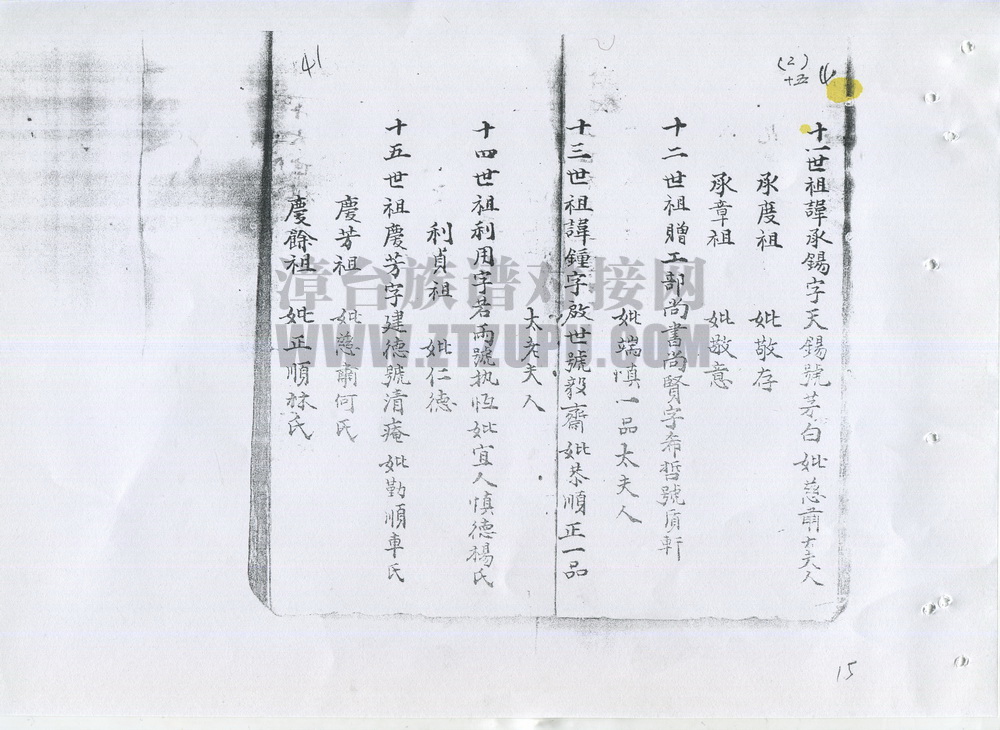 (2)
十五
41
十一世祖諱承錫字天錫號茅白 妣慈肅大夫人
承度祖 妣敬存
承章祖 妣敬意
十二世祖贈工部尚書尚賢字希哲號質軒
妣端慎一品太夫人
十三世祖諱鍾字啟世號毅齋 妣恭順正一品
太老夫人
十四世祖利用字若雨號執恆 妣宜人慎德楊氏
利貞祖 妣仁德
十五世祖慶芳字建德號清庵 妣勤順車氏
慶芳祖 妣慈肅何氏
慶餘祖 妣正順林氏
漳台族谱对接网
WWW.ZTZUPU.COM
15